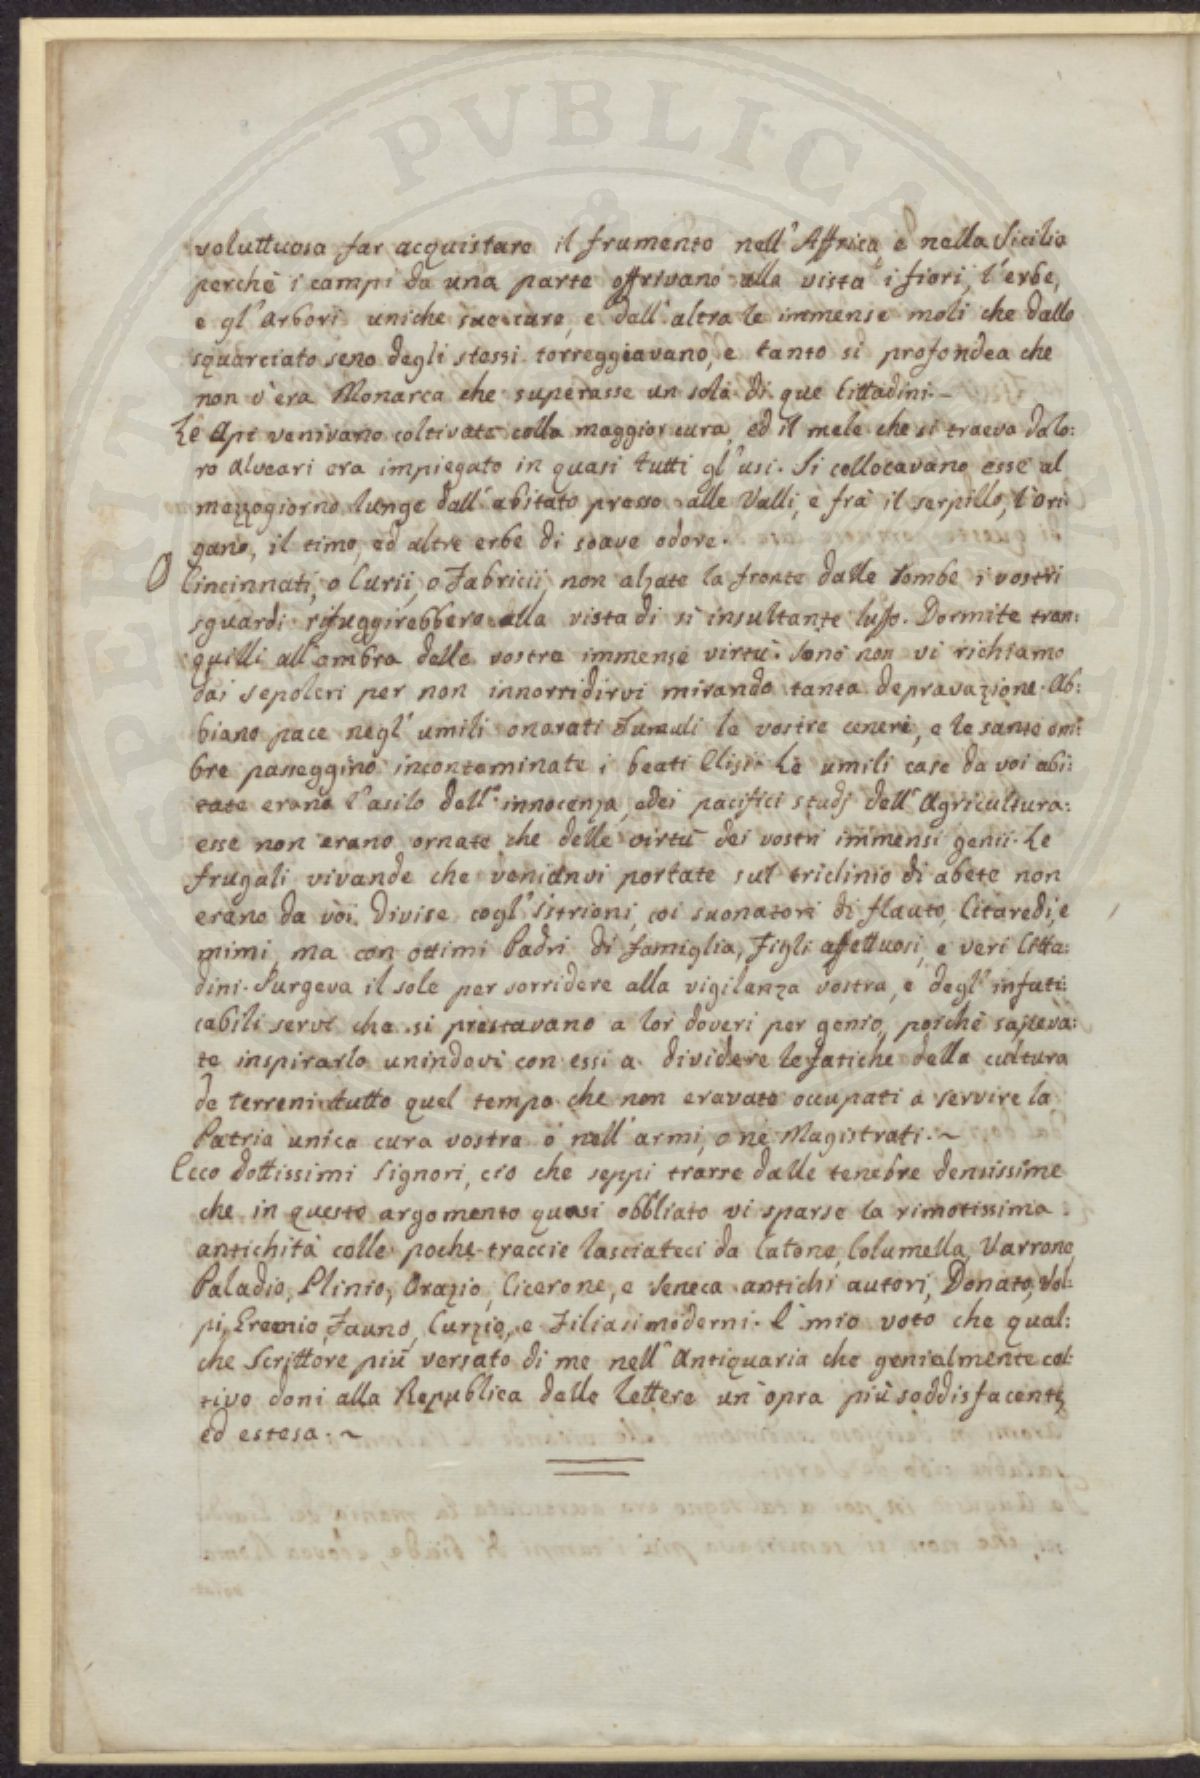 voluttuosa far acquistare il frumento nell'Affrica, e nella Sicilia
perchè i campi da una parte offrivano alla vista i fiori, l'erbe,
e gl'arbori uniche sue cure, e dall'altra le immense moli che dallo
squarciato seno degli stessi torreggiavano, e tanto si profondea che
non v'era Monarca che superasse un solo di que Cittadini. -
Le Api venivano coltivate colla maggior cura, ed il mele che si traeva da lo:
ro alveari era impiegato in quasi tutti gl'usi. Si collocavano esse al
mezzogiorno lunge dall'abitato presso alle Valli, e frà il serpillo, l'ori:
gano, il timo, ed altre erbe di soave odore.
O Cincinnati, o Curii, o Fabricii, non alzate la fronte dalle tombe i vostri
sguardi rifuggirebbero alla vista di si insultante lusso. Dormite tran:
quilli all'ombra delle vostre immense virtù. Io nò non vi richiamo
dai sepolcri per non innorridirvi mirando tanta depravazione. Ab:
biano pace negl'umili onorati Tumuli le vostre ceneri, e le sante om:
bre passeggino incontaminate i beati Elisi. Le umili case da voi abi:
tate erano l'asilo dell'innocenza, e dei pacifici studj dell'Agricultura:
esse non erano ornate che delle virtù dei vostri immensi genii. Le
frugali vivande che venianvi portate sul triclinio di abete non
erano da voi divise cogl'Istrioni, coi suonatori di flauto, Citaredi, e
mimi, ma con ottimi Padri di famiglia, Figli affettuosi, e veri Citta:
dini. Surgeva il sole per sorridere alla vigilanza vostra, e degl'infati:
cabili servi che si prestavano a lor doveri per genio, perchè sapeva:
te inspirarlo unindovi con essi a dividere le fatiche della cultura
de terreni tutto quel tempo che non eravate occupati a servire la
Patria unica cura vostra o nell'armi, o ne Magistrati. ~
Ecco dottissimi Signori, ciò che seppi trarre dalle tenebre densissime
che in questo argomento quasi obbliato vi sparse la rimotissima
antichità colle poche traccie lasciateci da Catone, Columella, Varrone,
Paladio, Plinio, Orazio, Cicerone, e Seneca antichi autori, Donato, Vol:
pi, Eremio, Fauno, Curzio, e Filiasi moderni. È mio voto che qual:
che Scrittore più versato di me nell'Antiquaria che genialmente col:
tivo doni alla Republica delle lettere un'opra più soddisfacente,
ed estesa. ~